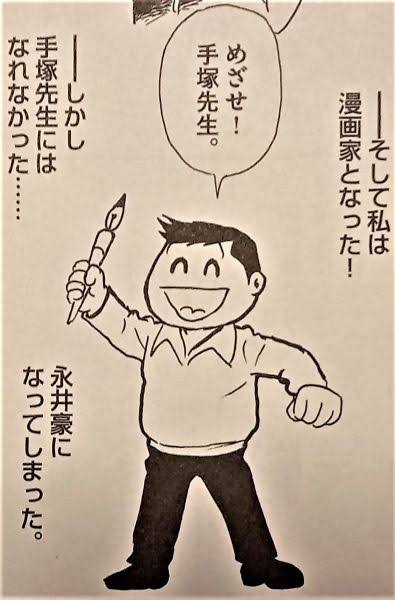 ――そして私は
漫画家となった！
めざせ！
手塚先生。
――しかし
手塚先生には
なれなかった……
永井豪に
なってしまった。